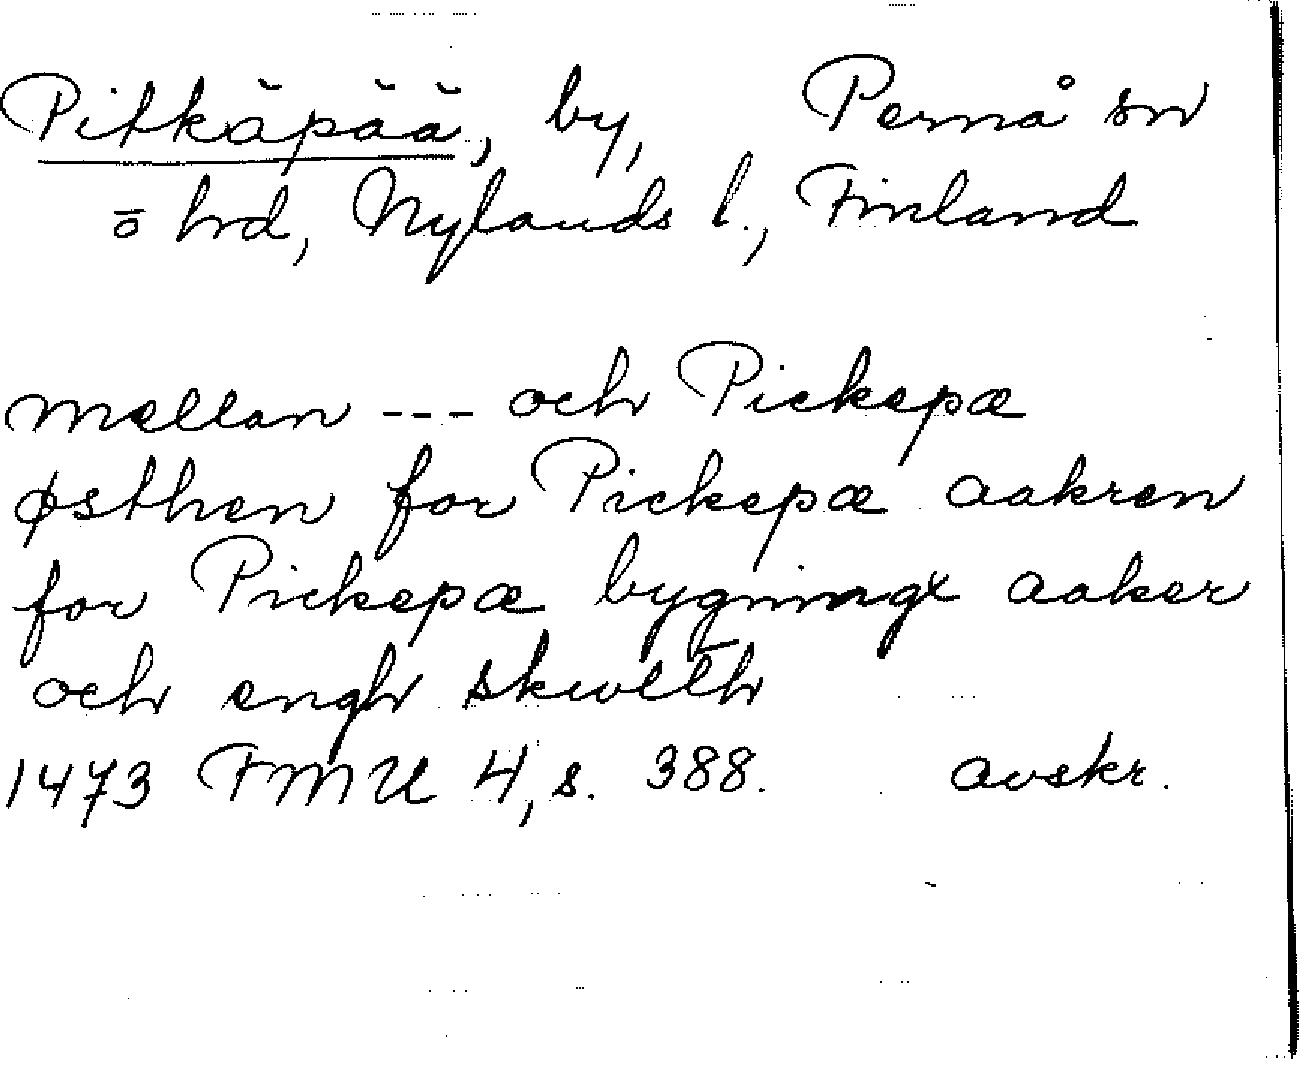 Pitkäpää, by, Pernå sn
ō hrd, Nylands l., Finland
mellan --- och Pickepæ
østhen for Pickepæ aakren
for Pickepæ bygningx aaker
och engh skwlth
1473 FMU 4, s. 388. avskr.